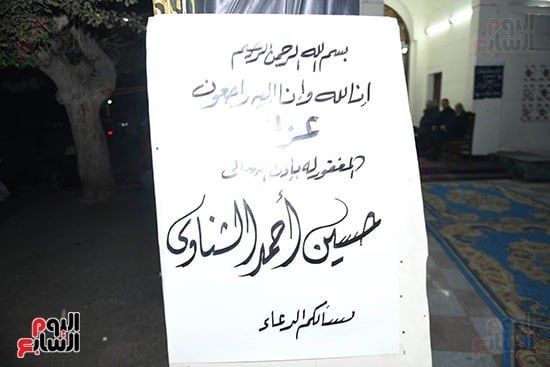 بسم الله الرحمن الرحيم
إنا لله وإنا إليه راجعون
عزاء
المغفور له بإذن الله تعالى
حسين أحمد الشناوى
نسألكم الدعاء
اليوم السابع